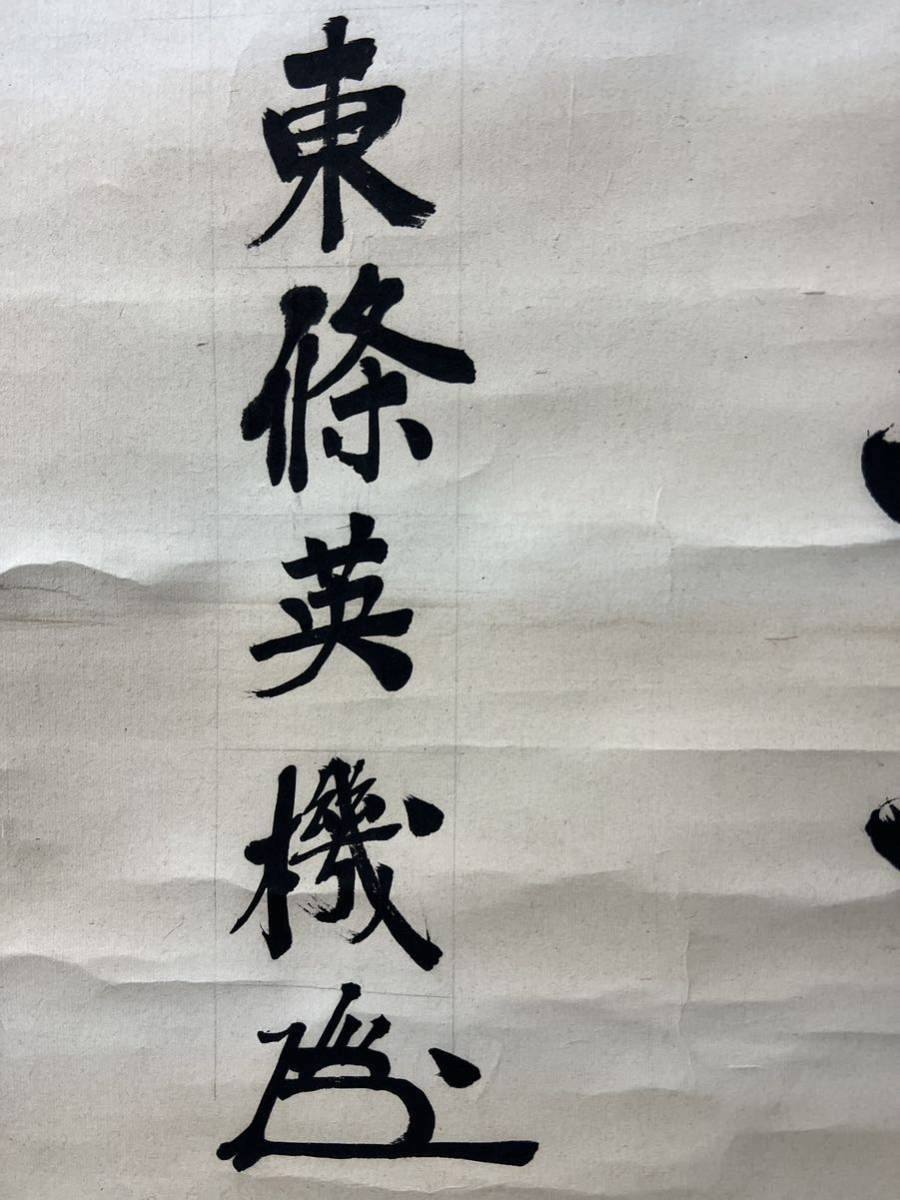 東條英機